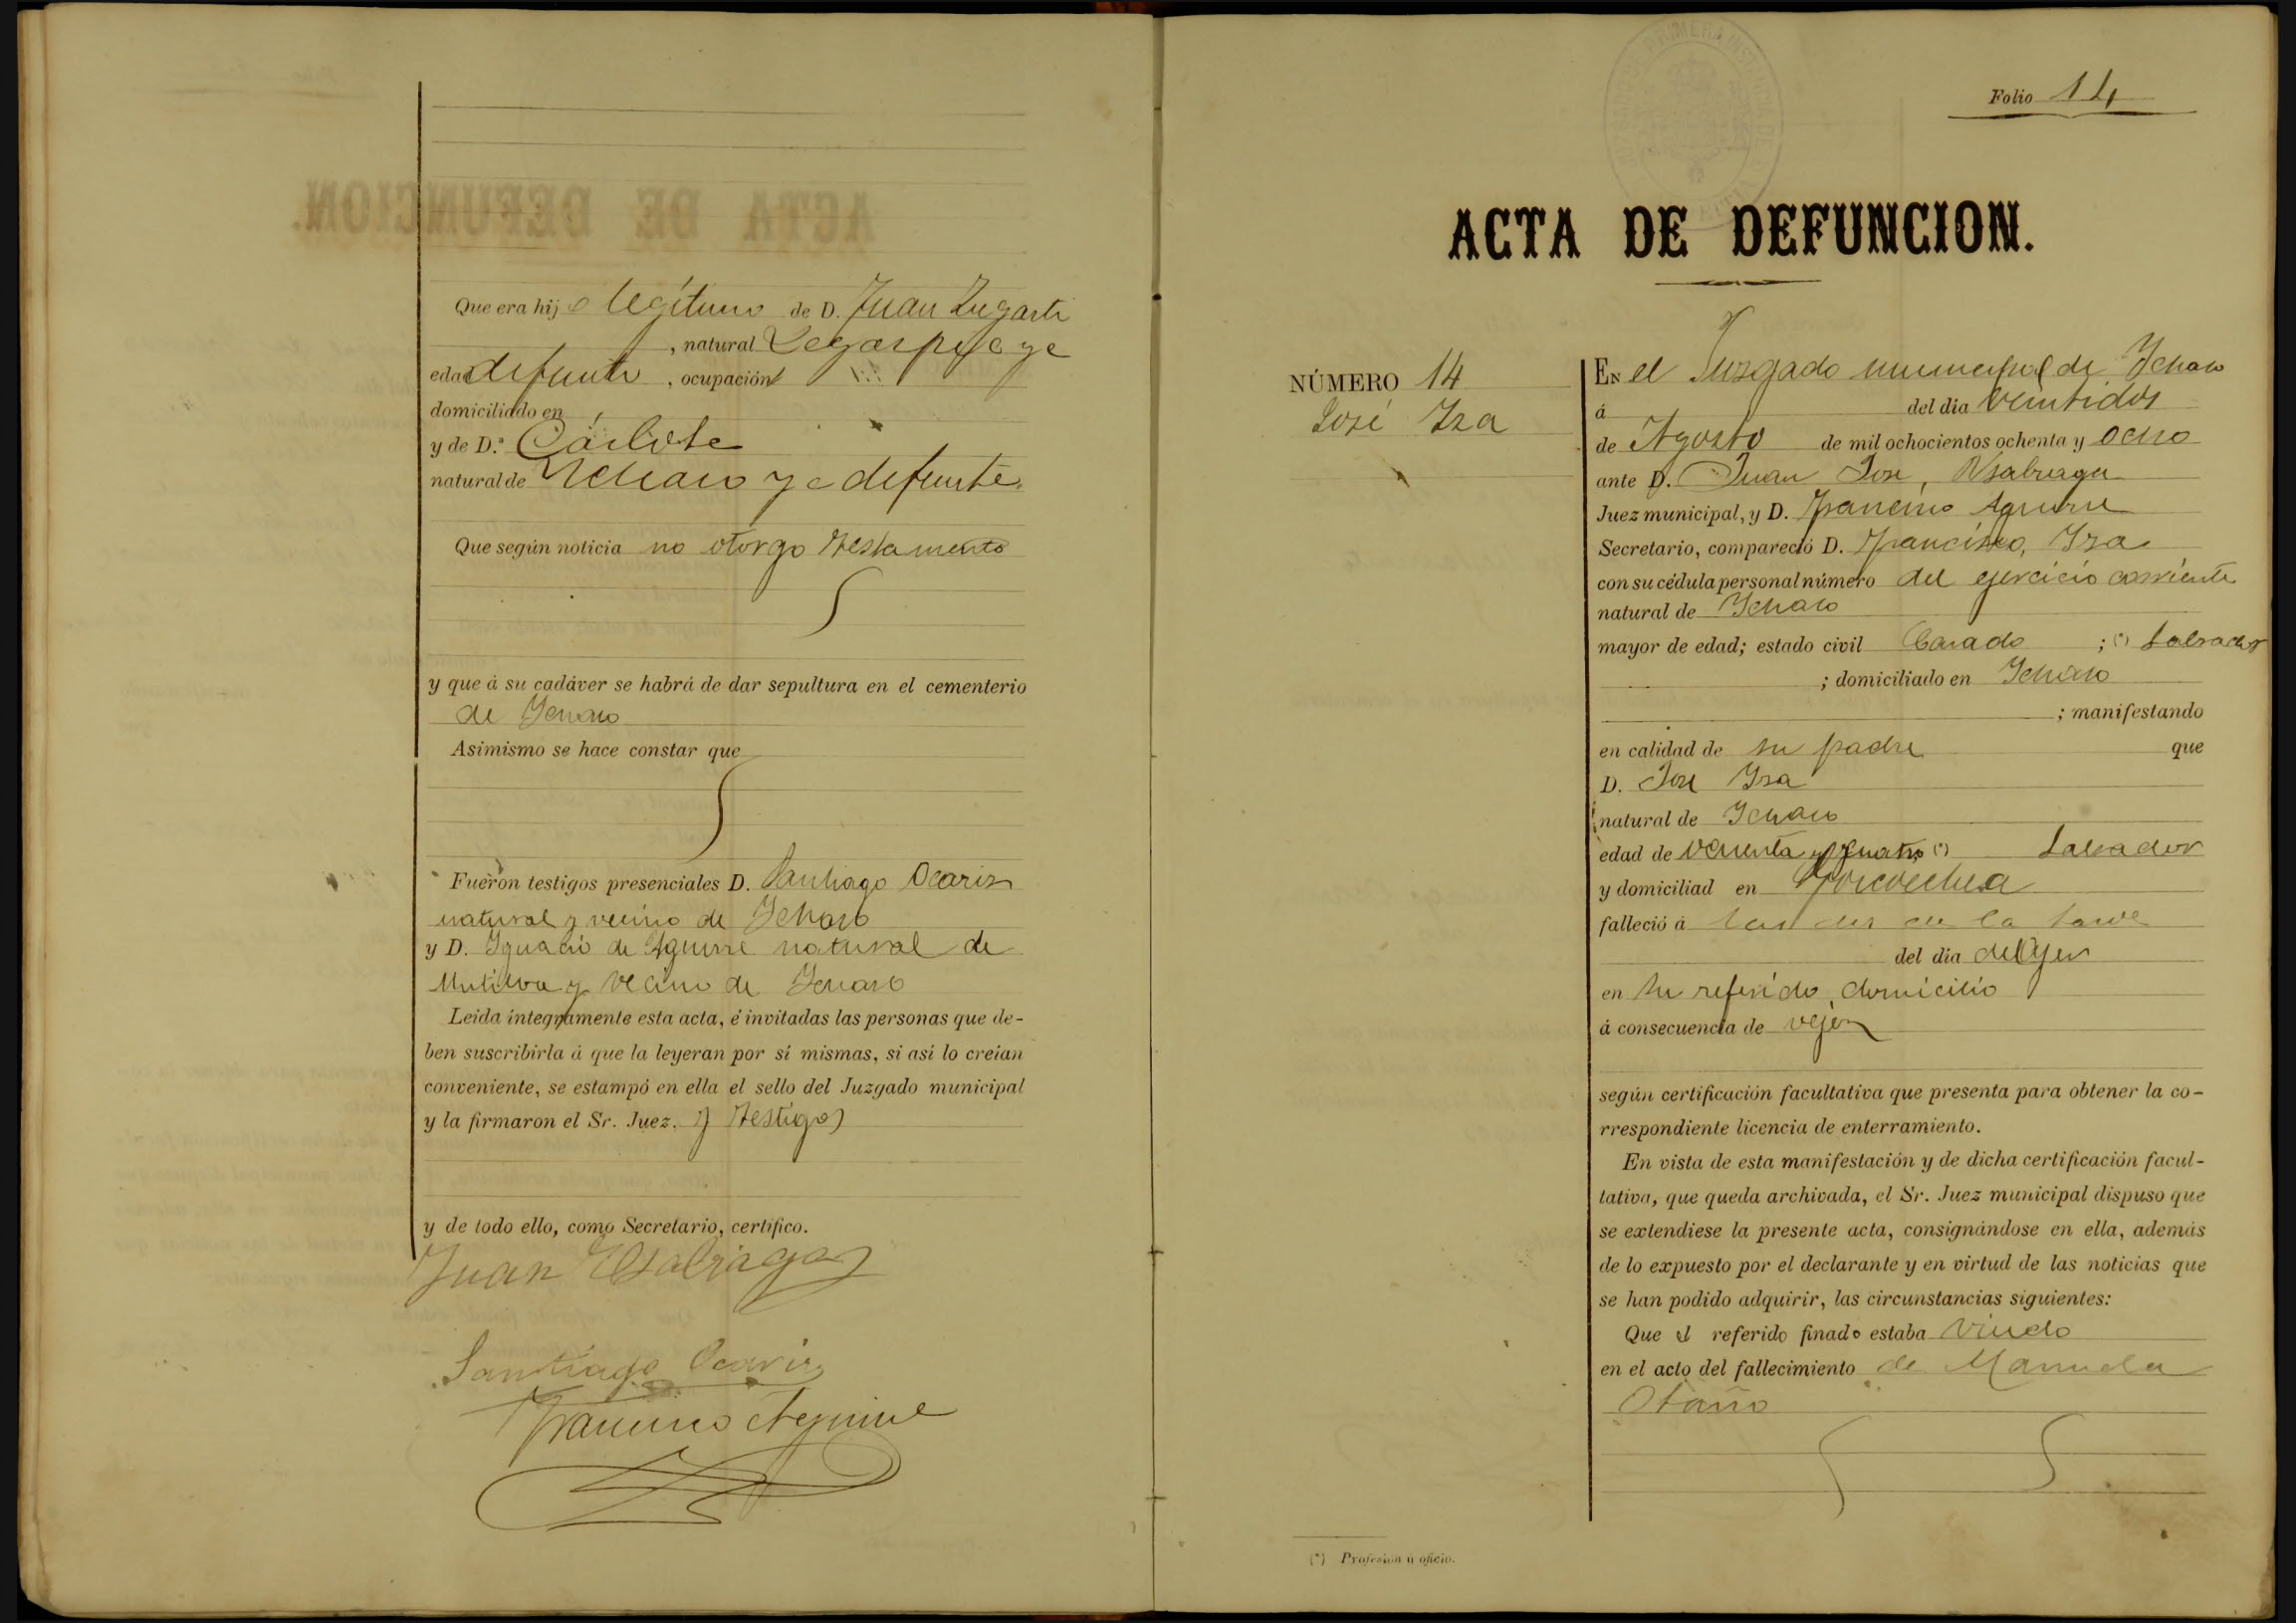 Que era hijo legítimo de D. Juan Zugasti
, natural Legazpi ya
edad defunto, ocupación
domiciliado en
y de D.ª Carlota
natural de Ichaso ya defunta.
Que según noticia no otorgo testamento
y que á su cadáver se habrá de dar sepultura en el cementerio
de Ichaso
Asimismo se hace constar que
Fueron testigos presenciales D. Santiago Ocariz
natural y vecino de Ichaso
y D. Ignacio de Aguirre natural de
Mutiloa y vecino de Ichaso
Leida íntegramente esta acta, é invitadas las personas que de-
ben suscribirla á que la leyeran por sí mismas, si así lo creían
conveniente, se estampó en ella el sello del Juzgado municipal
y la firmaron el Sr. Juez. y testigos
y de todo ello, como Secretario, certifico.
Juan
Santiago Ocariz
Francisco Aguirre
Folio 14
ACTA DE DEFUNCION.
NÚMERO 14
José Iza
EN el Juzgado municipal de Ichaso
á del dia veintidos
de Agosto de mil ochocientos ochenta y ocho
ante D. Juan José
Juez municipal, y D. Francisco Aguirre
Secretario, compareció D. Francisco Iza
con su cédula personal número del ejercicio corriente
natural de Ichaso
mayor de edad; estado civil Casado ; (*) Labrador
; domiciliado en Ichaso
; manifestando
en calidad de su padre que
D. José Iza
natural de Ichaso
edad de (*) Labrador
y domiciliad en
falleció á las dos de la tarde
del dia del Ayer
en su referido domicilio
á consecuencia de vejez
según certificación facultativa que presenta para obtener la co-
rrespondiente licencia de enterramiento.
En vista de esta manifestación y de dicha certificación facul-
tativa, que queda archivada, el Sr. Juez municipal dispuso que
se extendiese la presente acta, consignándose en ella, además
de lo expuesto por el declarante y en virtud de las noticias que
se han podido adquirir, las circunstancias siguientes:
Que el referido finado estaba viudo
en el acto del fallecimiento de Manuela
Otaño
(*) Profesion u oficio.